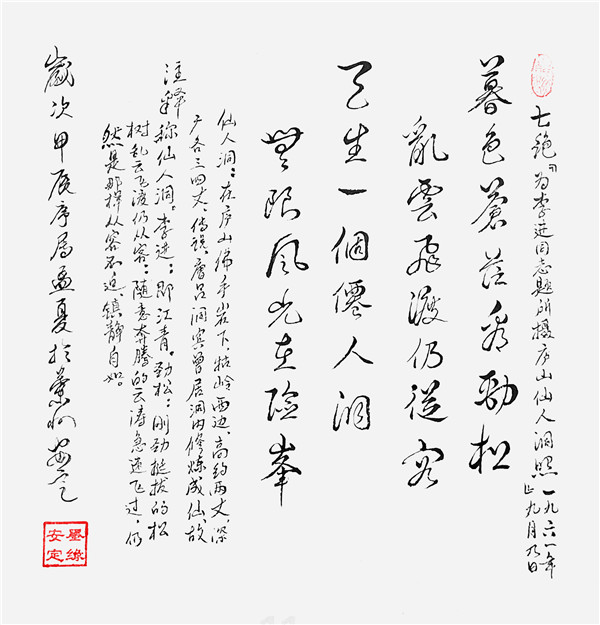 七绝『为李进同志题所摄庐山仙人洞照』一九六一年九月九日
暮色蒼茫看勁松
亂雲飛渡仍從容
天生一個僊人洞
無限风光在險峯
仙人洞：在庐山佛手岩下，牯岭西边，高约两丈深
广各三四丈、传说，唐吕洞宾曾居洞内修炼成仙，故
注释
称仙人洞。李进：即江青。劲松：刚劲挺拔的松
树乱云飞渡仍从容：随意奔腾的云涛急速飞过，仍
然是那样从容不迫、镇静自如。
嵗次甲辰序属孟夏於
墨缘
安定